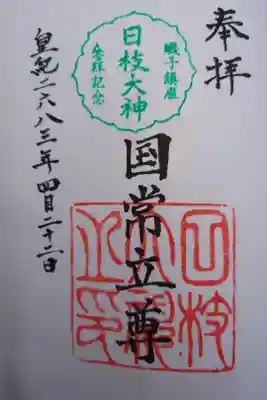 奉拝
鎮座
日枝大神
参拝記念
国常立尊
日枝
之印
皇紀二六八三年四月二十二日